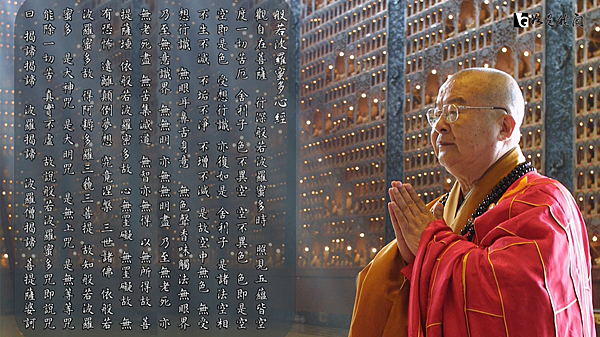 般若波羅蜜多心經
觀自在菩薩 行深般若波羅蜜多時 照見五蘊皆空
度一切苦厄 舍利子 色不異空 空不異色 色即是空
空即是色 受想行識 亦復如是 舍利子 是諸法空相
不生不滅 不垢不淨 不增不減 是故空中無色 無受
想行識 無眼耳鼻舌身意 無色聲香味觸法無眼界
乃至無意識界 無無明 亦無無明盡 乃至無老死 亦
無老死盡 無苦集滅道 無智亦無得 以無所得故 菩
提薩埵 依般若波羅蜜多故 心無罣礙 無罣礙故 無
有恐怖 遠離顛倒夢想 究竟涅槃 三世諸佛 依般若
波羅蜜多故 得阿耨多羅三藐三菩提 故知般若波羅
蜜多 是大神咒 是大明咒 是無上咒 是無等等咒
能除一切苦 真實不虛 故說般若波羅蜜多咒即說咒
曰 揭諦揭諦 波羅揭諦 波羅僧揭諦 菩提薩婆訶